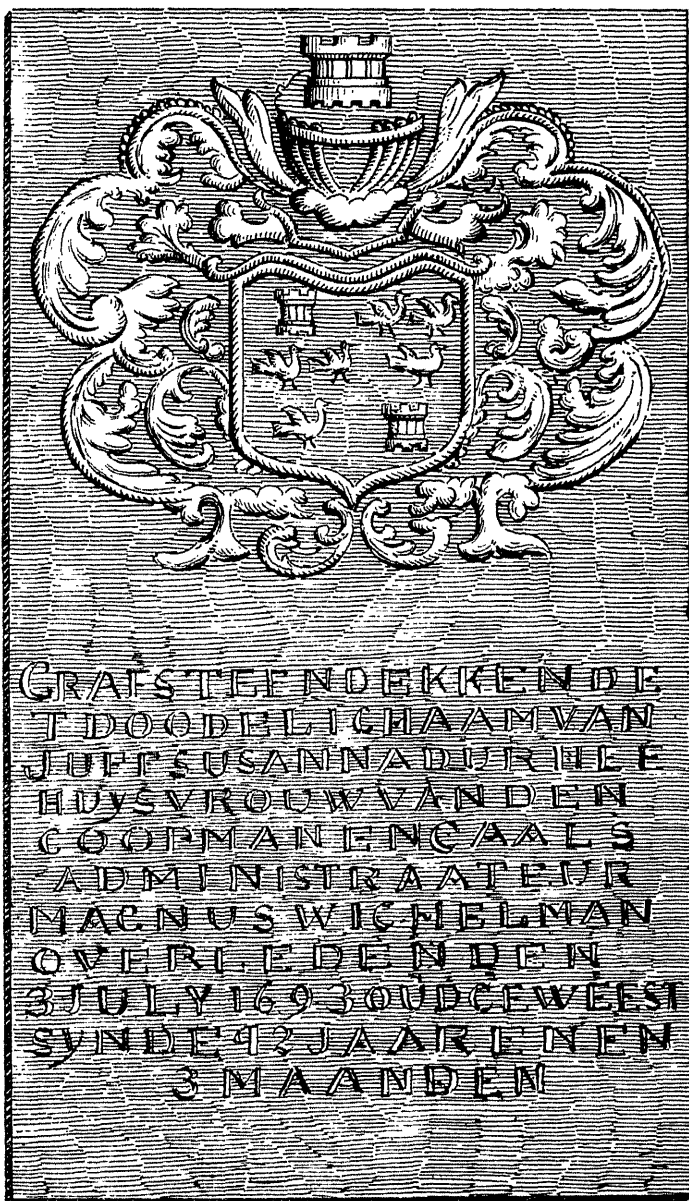 GRAFSTEEN DEKKENDE
T DOODE LICHAAM VAN
JUFF SUSANNA DURHEE
HUYSVROUW VAN DEN
COOPMAN EN GAALS
ADMINISTRAATEUR
MAGNUS WICHELMAN
OVERLEDEN DEN
3 JULY 1693 OUD GEWEEST
SYNDE 42 JAAREN EN
3 MAANDEN